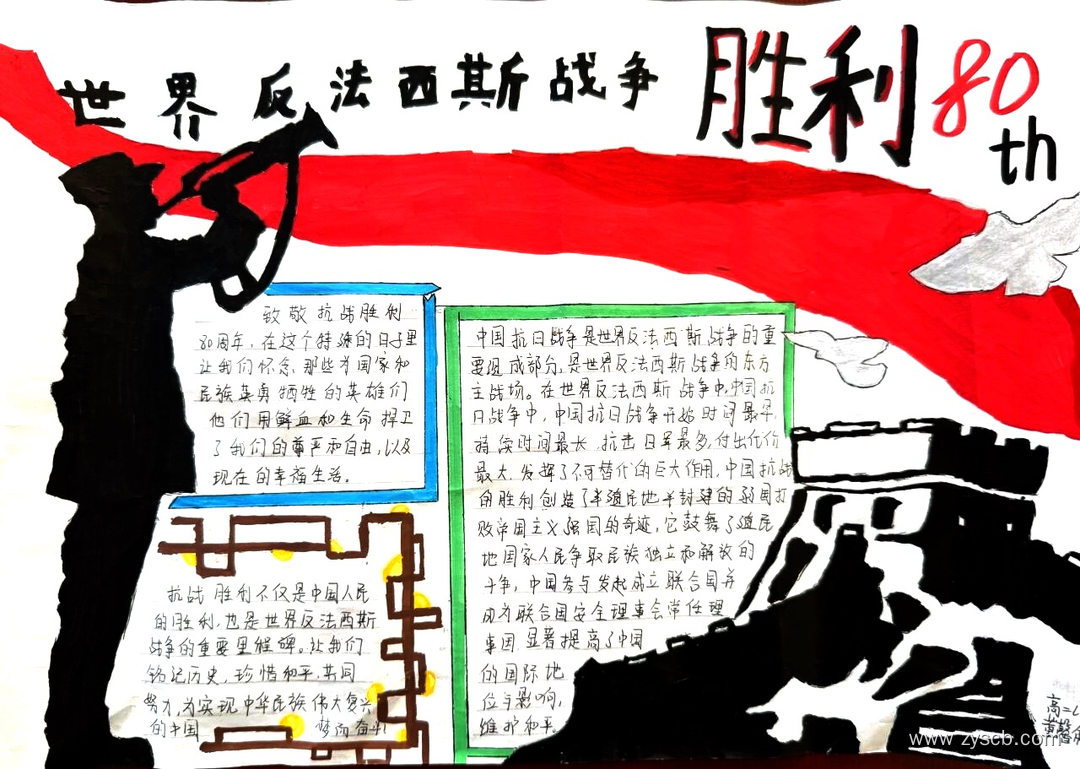 世界反法西斯战争胜利80th
致敬抗战胜利
80周年，在这个特殊的日子里
让我们怀念，那些为国家和
民族英勇牺牲的英雄们
他们用鲜血和生命捍卫
了我们的尊严和自由，以及
现在的幸福生活。
中国抗日战争是世界反法西斯战争的重
要组成部分，是世界反法西斯战争的东方
主战场。在世界反法西斯战争中，中国抗
日战争中，中国抗日战争开始时间最早，
持续时间最长，抗击日军最多，付出代价
最大，发挥了不可替代的巨大作用，中国抗战
的胜利创造了半殖民地半封建的弱国打
败帝国主义强国的奇迹，它鼓舞了殖民
地国家人民争取民族独立和解放的
斗争，中国参与发起成立联合国并
成为联合国安全理事会常任理
事国，显著提高了中国
的国际地
位与影响，
维护和平。
抗战胜利不仅是中国人民
的胜利，也是世界反法西斯
战争的重要里程碑。让我们
铭记历史，珍惜和平，共同
努力，为实现中华民族伟大复兴
的中国梦而奋斗
高二
www.zyscb.com